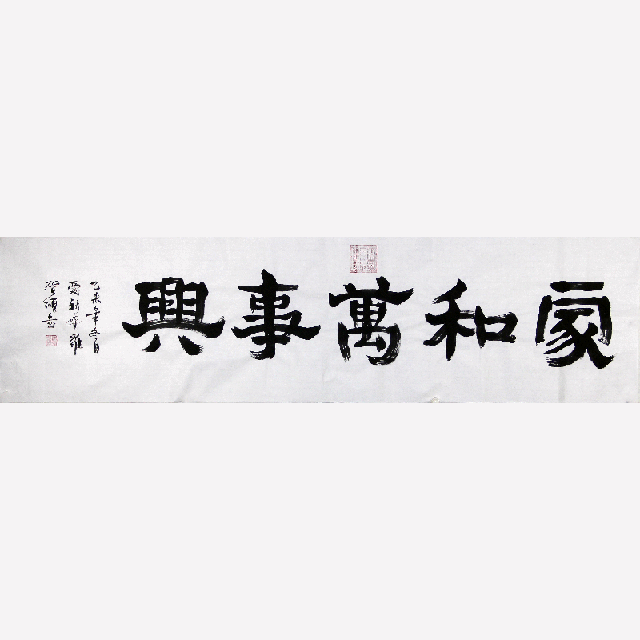 家和萬事興
乙未年冬月
愛新覺羅